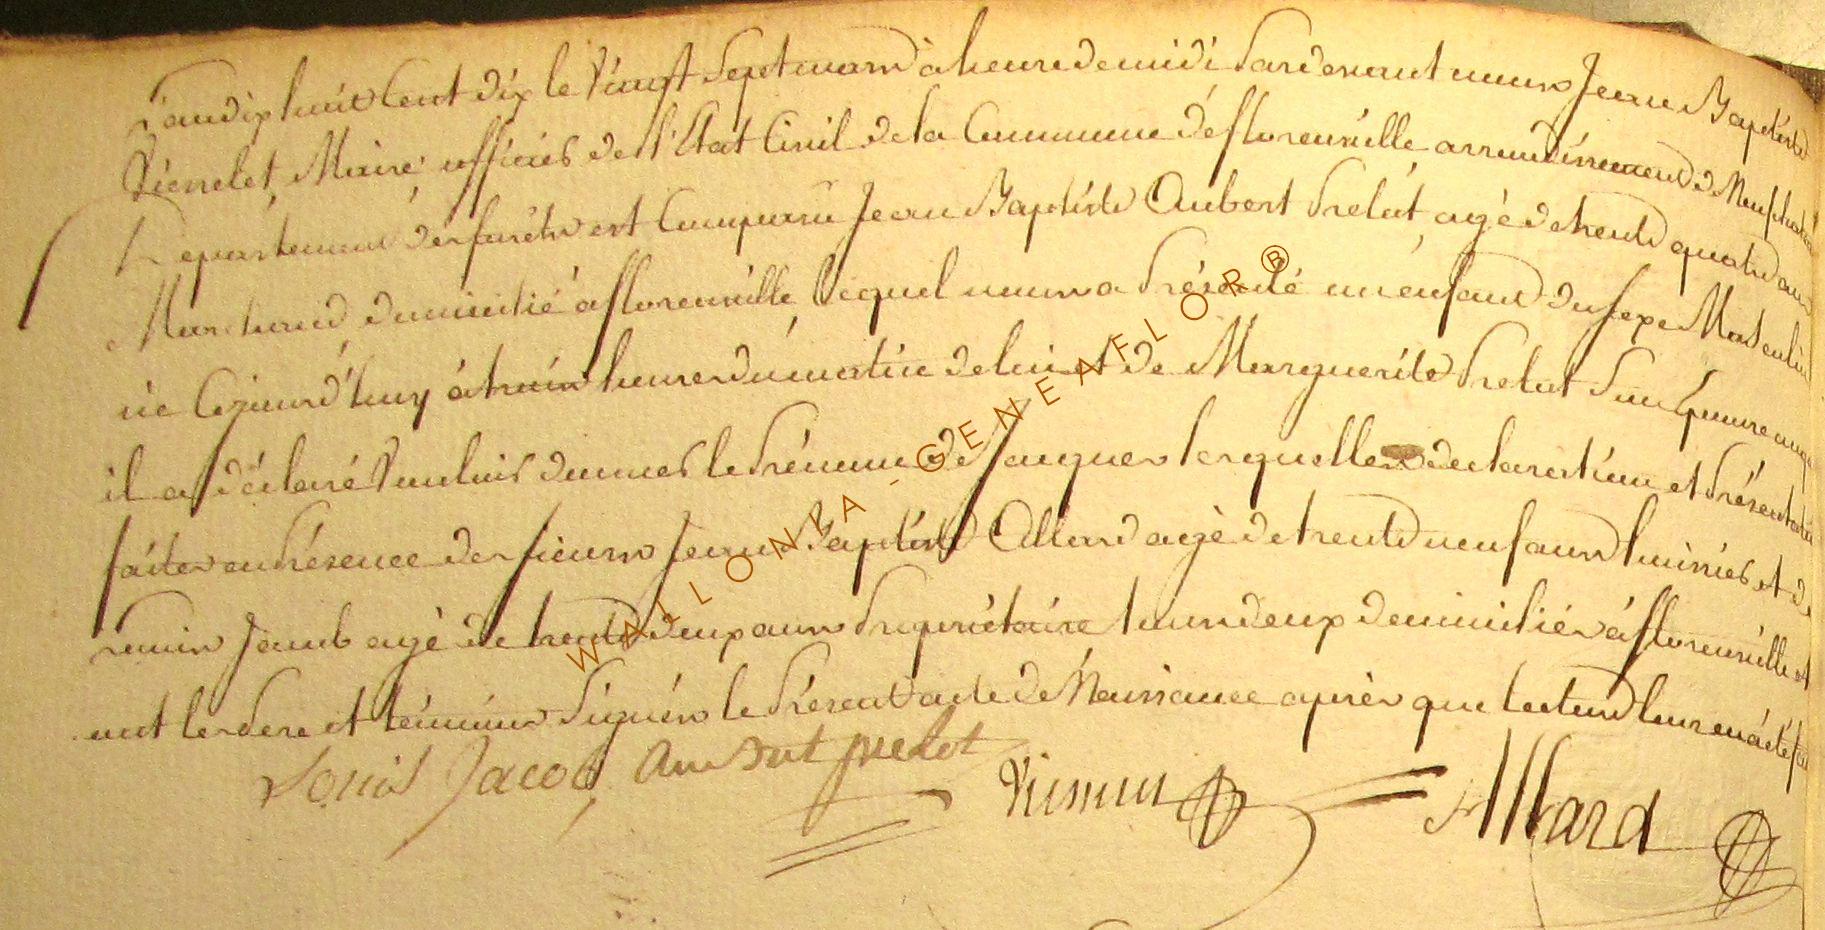 L'an dix huit Cent dix le Vingt Sept mars à heure de midi Pardevant nous Jean Baptiste
Vienelet, Maire officier de l'Etat Civil de la Commune de florenville arrondissement de Neufchateau
Departement des forêts est Comparu Jean Baptiste Aubert Prelat, agé de trente quatre ans
Marchand domicilié a florenville, Lequel nous a Présenté un enfant du sexe Masculin
né Cejourd'huy à trois heures du matin de lui et de Marguerite Prelat Son Epouse auquel
il a déclaré Vouloir donner le Prénom de Jacques lesquelles declaration et Présentation
faites en Présence des sieurs Jean Baptiste Allard agé de trente neuf ans huissier et de
Louis Jacob agé de trente deux ans Propriétaire tous deux domiciliés á florenville et
ont les Pere et témoins Signés le Présent acte de Naissance après que lecture leur en á été fai
Louis Jacob, Aubert prelat Allard
WALLONIA-GENEAFLOR®